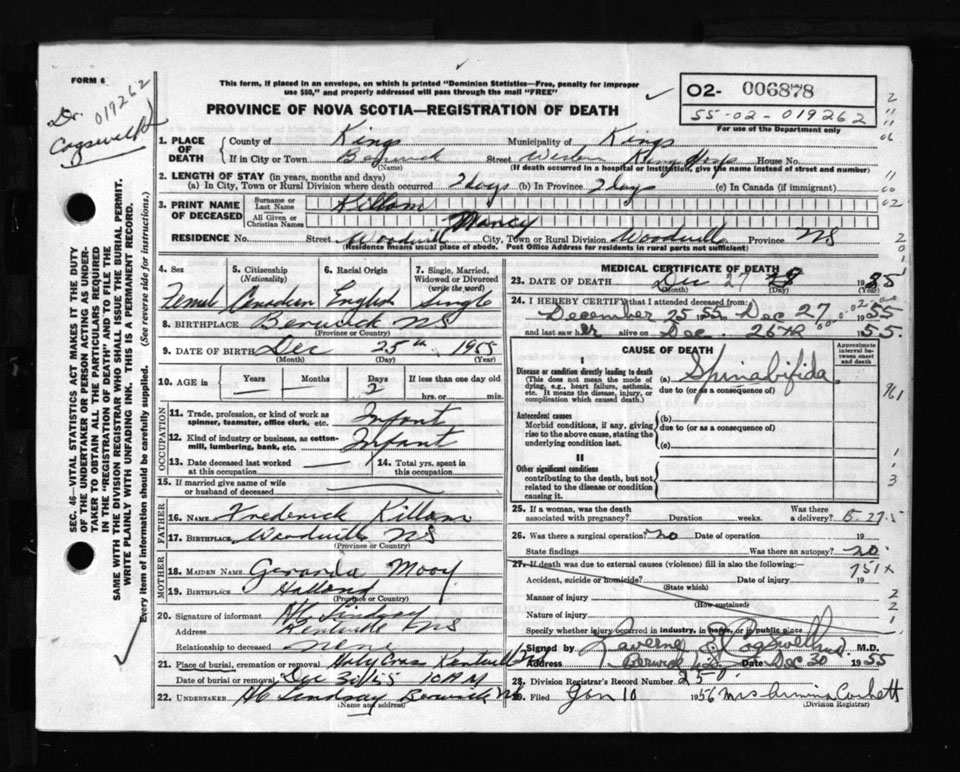 FORM 6
Dr. 019262
Cogswell
This form, if placed in an envelope, on which is printed "Dominion Statistics—Free, penalty for improper
use $50," and properly addressed will pass through the mail "FREE"
PROVINCE OF NOVA SCOTIA—REGISTRATION OF DEATH
O2- 006878
55-02-019262
For use of the Department only
1. PLACE OF DEATH
County of Kings Municipality of Kings
If in City or Town Berwick Street Western Kings Hosp House No.
(Name) (If death occurred in a hospital or institution, give the name instead of street and number)
2. LENGTH OF STAY (in years, months and days)
(a) In City, Town or Rural Division where death occurred 2 days (b) In Province 2 days (c) In Canada (if immigrant)
3. PRINT NAME OF DECEASED
Surname or Last Name Killam
All Given or Christian Names Nancy
RESIDENCE No. Street Woodville City, Town or Rural Division Woodville Province NS
(Residence means usual place of abode. Post Office Address for residents in rural parts not sufficient)
4. Sex Female
5. Citizenship (Nationality) Canadian
6. Racial Origin English
7. Single, Married, Widowed or Divorced (write the word) Single
8. BIRTHPLACE Berwick NS
(Province or Country)
9. DATE OF BIRTH Dec 25th 1955
(Month) (Day) (Year)
10. AGE in Years — Months — Days 2 If less than one day old
hrs. or min.
OCCUPATION
11. Trade, profession, or kind of work as spinner, teamster, office clerk, etc. Infant
12. Kind of industry or business, as cotton-mill, lumbering, bank, etc. Infant
13. Date deceased last worked at this occupation —
14. Total yrs. spent in this occupation
15. If married give name of wife or husband of deceased
FATHER
16. NAME Frederick Killam
17. BIRTHPLACE Woodville NS
(Province or Country)
MOTHER
18. MAIDEN NAME Geranda Mooy
19. BIRTHPLACE Holland
(Province or Country)
20. Signature of informant HC Lindsay
Address Kentville NS
Relationship to deceased none
21. Place of burial, cremation or removal Holy Cross Kentville
Date of burial or removal Dec 30/55 10 AM
22. UNDERTAKER HC Lindsay Berwick NS
(Name and address)
MEDICAL CERTIFICATE OF DEATH
23. DATE OF DEATH Dec 27 1955
(Month) (Day) (Year)
24. I HEREBY CERTIFY that I attended deceased from:
December 25 1955 to Dec 27 1955
and last saw her alive on Dec. 26th 1955.
CAUSE OF DEATH
Approximate interval between onset and death
I
Disease or condition directly leading to death (a) Spina bifida
(This does not mean the mode of dying, e.g., heart failure, asthenia, etc. It means the disease, injury, or complication which caused death.)
due to (or as a consequence of)
Antecedent causes (b)
Morbid conditions, if any, giving rise to the above cause, stating the underlying condition last.
due to (or as a consequence of)
(c)
II
Other significant conditions
contributing to the death, but not related to the disease or condition causing it.
25. If a woman, was the death associated with pregnancy? Duration weeks. Was there a delivery?
26. Was there a surgical operation? no Date of operation 19
State findings Was there an autopsy? no
27. If death was due to external causes (violence) fill in also the following:—
751X
Accident, suicide or homicide? Date of injury 19
(State which)
Manner of injury
(How sustained)
Nature of injury
Specify whether injury occurred in industry, in home, or in public place
Signed by Laverne B Cogswell M.D.
Address Berwick NS Date Dec 30 1955
28. Division Registrar's Record Number 250
29. Filed Jan 10 1956 Mrs Armina Corbett
(Division Registrar)
SEC. 46—VITAL STATISTICS ACT MAKES IT THE DUTY
OF THE UNDERTAKER OR PERSON ACTING AS UNDER-
TAKER TO OBTAIN ALL THE PARTICULARS REQUIRED
IN THE "REGISTRATION OF DEATH" AND TO FILE THE
SAME WITH THE DIVISION REGISTRAR WHO SHALL ISSUE THE BURIAL PERMIT.
WRITE PLAINLY WITH UNFADING INK. THIS IS A PERMANENT RECORD.
Every item of information should be carefully supplied. (See reverse side for instructions.)